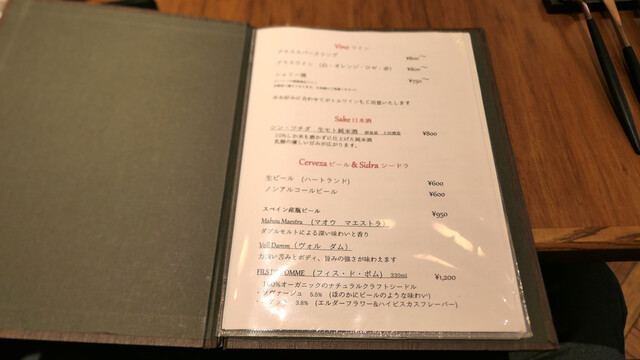 Vino ワイン
グラススパークリング ¥800～
グラスワイン （白・オレンジ・ロゼ・赤） ¥800～
シェリー酒 ¥750～
※お好みに合わせてボトルワインもご用意いたします
Sake 日本酒
シン・ツチダ 生モト純米酒 群馬県 土田酒造 ¥800
乳酸の優しい甘みが広がります。
Cerveza ビール & Sidra シードラ
生ビール （ハートランド） ¥600
ノンアルコールビール ¥600
スペイン産瓶ビール ¥950
Mahou Maestra （マオウ マエストラ）
ダブルモルトによる深い味わいと香り
Voll Damm（ヴォル ダム）
力強い苦みとボディ、旨みの強さが味わえます
（フィス・ド・ポム） 330ml ¥1,200
100%オーガニックのナチュラルクラフトシードル
ソヴァージュ 5.5% （ほのかにビールのような味わい）
3.8% （エルダーフラワー&ハイビスカスフレーバー）